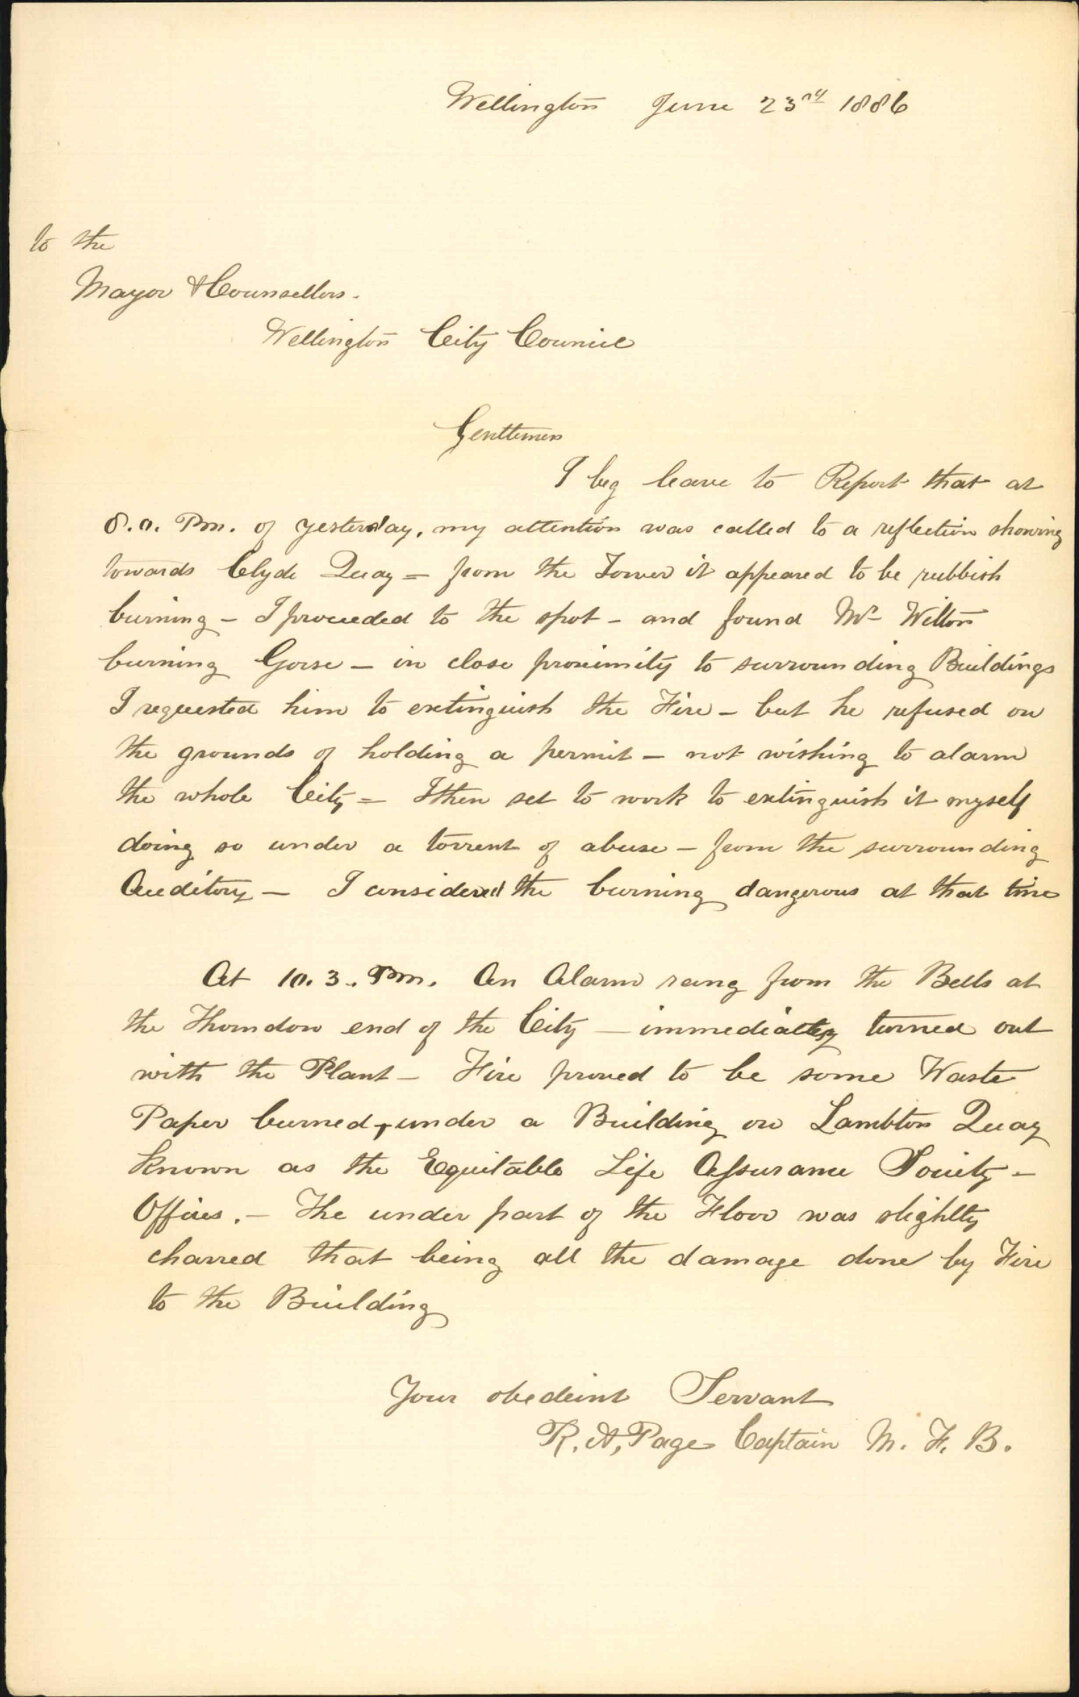 Wellington June 23rd 1886
to the
Mayor & Counsellors.
Wellington City Council
Gentlemen
I beg leave to Report that at
8.0. Pm. of yesterday, my attention was called to a reflection showing
towards Clyde Quay = from the Tower it appeared to be rubbish
burning - I proceeded to the spot - and found Mr Wilton
burning Gorse - in close proximity to surrounding Buildings
I requested him to extinguish the Fire - but he refused on
the grounds of holding a permit - not wishing to alarm
the whole City = I then set to work to extinguish it myself
doing so under a torrent of abuse - from the surrounding
Auditory - I considered the burning dangerous at that time
At 10.3. Pm. An Alarm rang from the Bells at
the Thorndon end of the City - immediately turned out
with the Plant - Fire proved to be some Waste
Paper burned, under a Building on Lambton Quay
known as the Equitable Life Assurance Society -
Offices. - The under part of the Floor was slightly
charred that being all the damage done by Fire
to the Building
Your obedient Servant
R. A, Page Captain M. F. B.